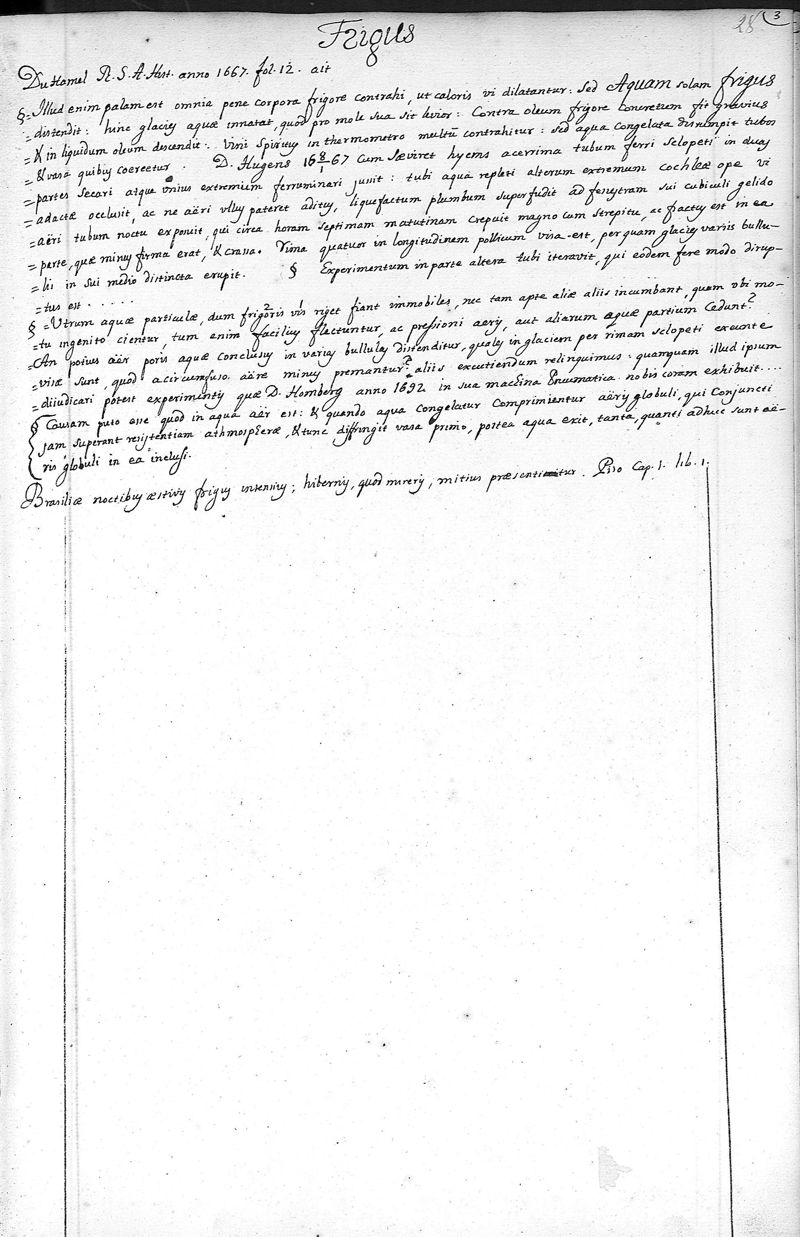 28 3
Frigus
Du Hamel R. S. A. Hist. anno 1667. fol. 12. ait
§ = Illud enim palam est omnia pene corpora frigore contrahi, ut caloris vi dilatantur: Sed Aquam solam frigus
= distendit: hinc glacies aquæ innatat, quod pro mole sua sit levior: Contra oleum frigore concretum fit gravius
= & in liquidum oleum descendit: Vini Spiritus in thermometro multū contrahitur: sed aqua Congelata disrumpit tubos
= & vasa quibus coercetur. D. Hugens 16 8/1 67 Cum Sæviret hyems acerrima tubum ferri Sclopeti in duas
= partes Secari atque unius extremium ferruminari jussit: tubi aqua repleti alterum extremum cochleæ ope vi
= adactæ occlusit, ac ne aëri ullus pateret aditus, liquefactum plumbum superfudit ad fenestram sui cubiculi gelido
= aëri tubum noctu exposuit, qui circa horam Septimam matutinam crepuit magno cum strepitu, ac fractus est in ea
= parte, quæ minus firma erat, & crassa. Rima quatuor in longitudinem pollicum visa est, per quam glacies variis bullu-
= lis in sui medio distincta erupit. § Experimentum in parte altera tubi iteravit, qui eōdem fere modo dirup-
= tus est . . . . . .
§ = Utrum aquæ particulæ, dum frigoris vis riget fiant immobiles, nec tam apte aliæ aliis incumbant, quam ubi mo-
= tu ingenito cientur, tum enim facilius flectuntur, ac pressioni aeris, aut aliarum aquæ partium Cedunt?
= An potius aër poris aquæ conclusus in varias bullulas distenditur, quales in glaciem per rimam sclopeti exeunte
= visæ sunt, quod a circumfuso aëre minus premantur? aliis excutiendum relinquimus: quamquam illud ipsum
= diiudicari potest experimentis quæ D. Homberg anno 1692 in sua machina Pneumatica nobis coram exhibuit....
§ Causam puto esse quod in aqua aër est: & quando aqua Congelatur Comprimientur aëris globuli, qui Conjuncti
jam superant resistentiam athmosphæræ, & tunc diffringit vasa primo, postea aqua exit, tanta, quanti adhuc sunt aë-
ris globuli in ea inclusi.
Brasiliæ noctibus æstivis frigus intensius; hibernis, quod mireris, mitius præsentitur. Piso Cap. 1. lib. 1.